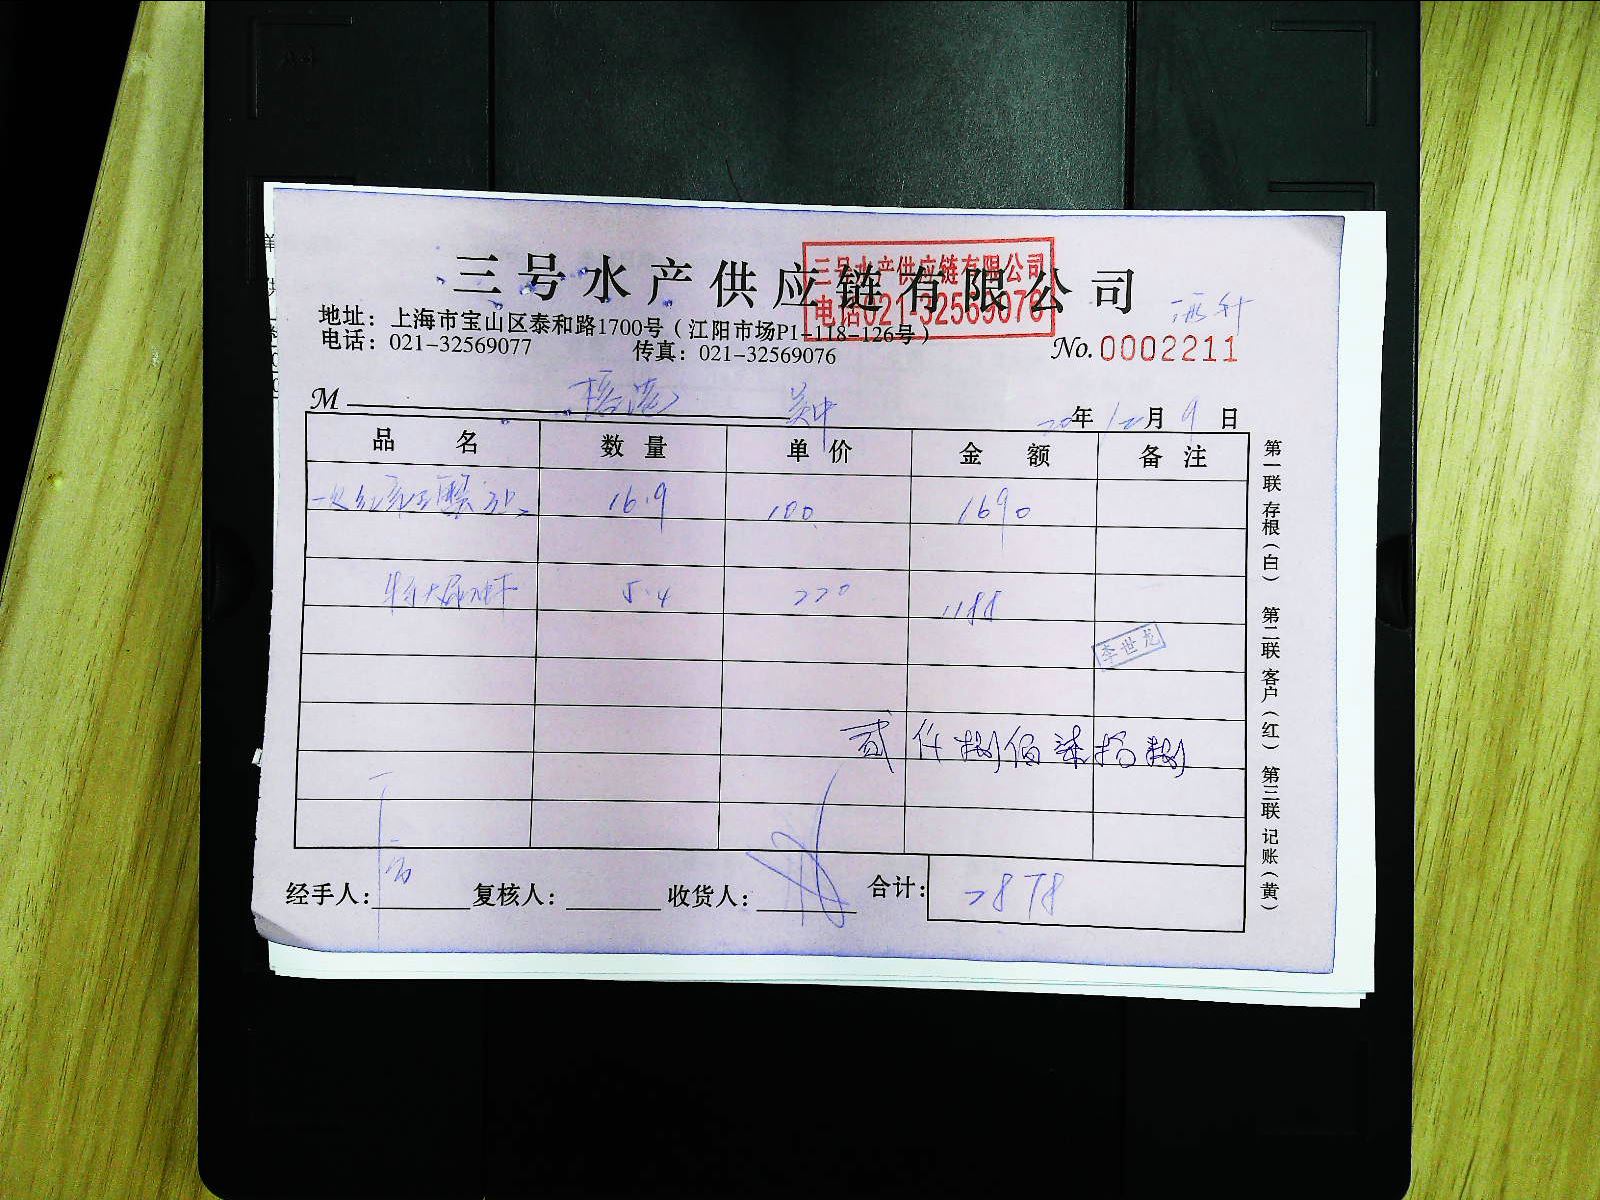 三号水产供应链有限公司
三号水产供应链有限公司
电话021-32569076
地址：上海市宝山区泰和路1700号（江阳市场P1-118-126号）
电话：021-32569077 传真：021-32569076
No.0002211
M
20年12月9日
品名 数量 单价 金额 备注
16.9 100 1690
特大 5.4 220 1188
李世龙
贰仟捌佰柒拾捌
经手人： 复核人： 收货人： 合计：2878
第一联 存根（白） 第二联 客户（红） 第三联 记账（黄）